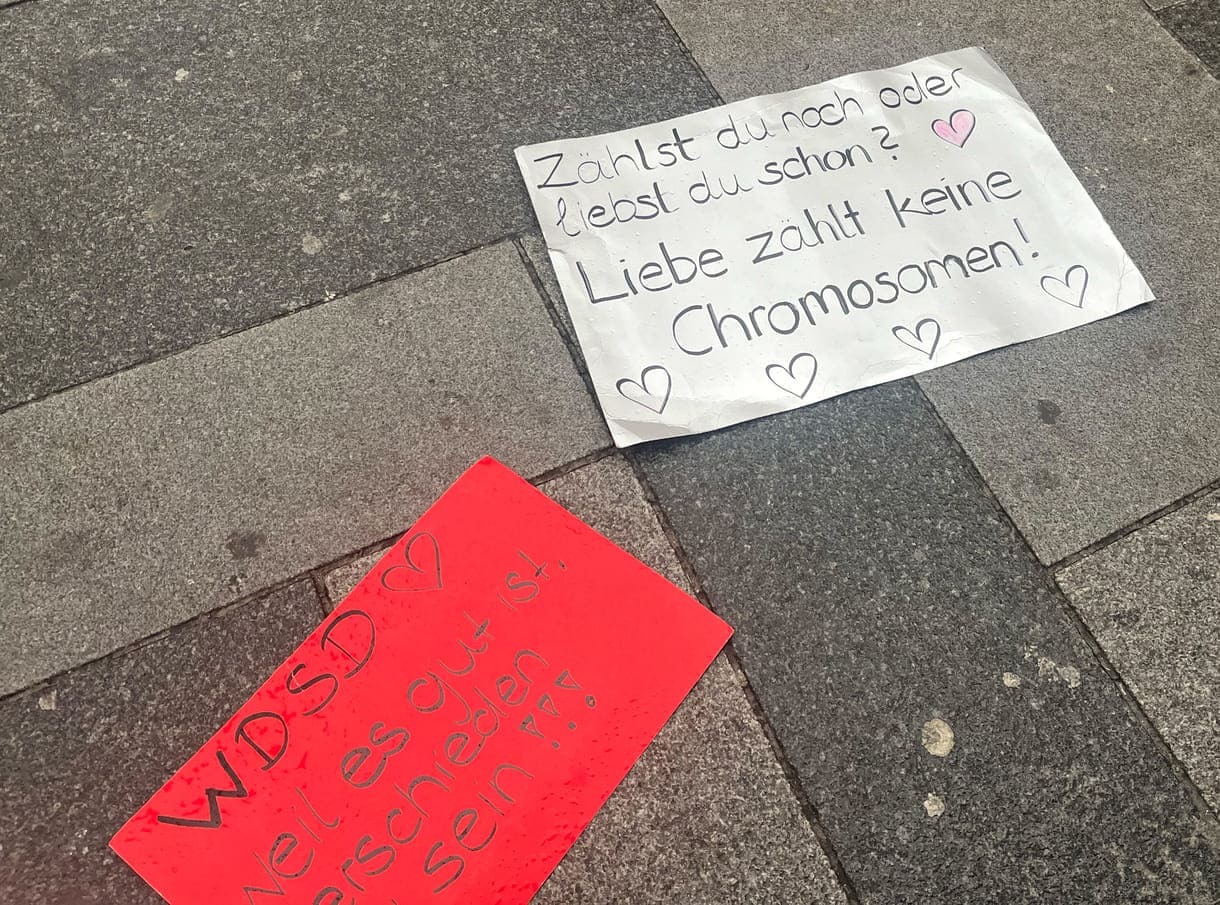 Zählst du noch oder
liebst du schon?
Liebe zählt keine
Chromosomen!
WDSD
weil es gut ist,
erschieden
sein !!!